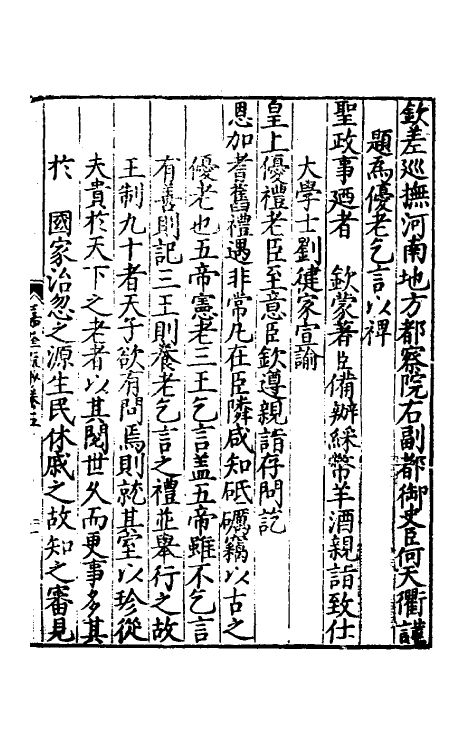 欽差巡撫河南地方都察院右副都御史臣何天衢謹
題為優老乞言以裨
聖政事廼者　欽蒙著臣備辦綵幣羊酒親詣致仕
大學士劉健家宣諭
皇上優禮老臣至意臣欽遵親詣存問訖
恩加耆舊禮遇非常凡在臣隣咸知砥礪竊以古之
優老也五帝憲老三王乞言盖五帝雖不乞言
有善則記三王則養老乞言之禮並舉行之故
王制九十者天子欲有問焉則就其室以珍從
夫貴於天下之老者以其閱世久而更事多其
於　國家治忽之源生民休戚之故知之審見